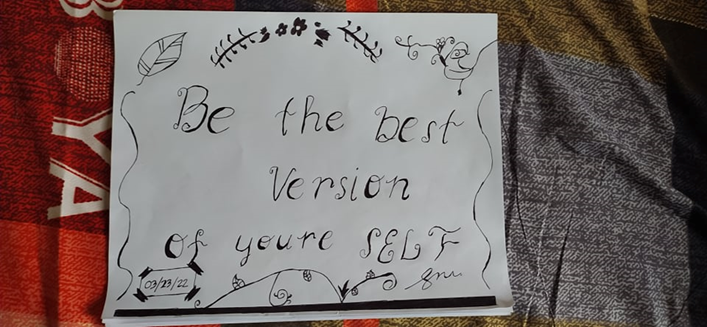 Be the best
Version
of youre SELF
03/23/22
BOYA